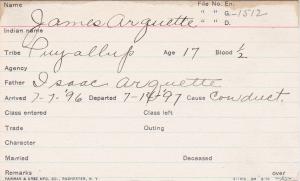 Name James Arquette File No. En.
" " G.-1512
Indian name " " D.
Tribe Puyallup Age 17 Blood 1/2
Agency
Father Isaac Arquette
Arrived 7-7-'96 Departed 7-14-'97 Cause Conduct.
Class entered Class left
Trade Outing
Character
Married Deceased
Remarks over